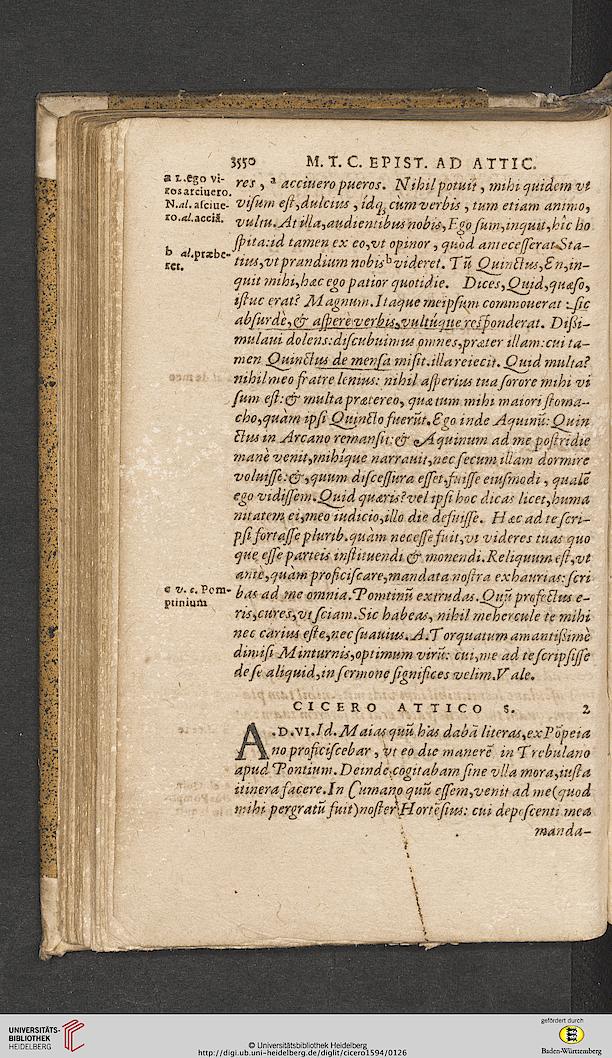 3550 M. T. C. EPIST. AD ATTIC.
a L. ego vi-
ros arciuero.
N. al. asciue-
ro. al. acciā.
b al. præbe-
ret.
c v. c. Pom-
ptinium
res, ᵃ acciuero pueros. Nihil potuit, mihi quidem vt
visum est, dulcius, idq, cum verbis, tum etiam animo,
vultu. At illa, audientibus nobis, Ego sum, inquit, hîc ho
spita: id tamen ex eo, vt opinor, quòd antecesserat Sta-
tius, vt prandium nobis ᵇ videret. Tū Quinctus, En, in-
quit mihi, hæc ego patior quotidie. Dices, Quid, quæso,
istuc erat? Magnum. Itaque meipsum commouerat: sic
absurdè, & asperè verbis, vultúque responderat. Dissi-
mulaui dolens: discubuimus omnes, præter illam: cui ta-
men Quinctus de mensa misit. illa reiecit. Quid multa?
nihil meo fratre lenius: nihil asperius tua sorore mihi vi
sum est: & multa prætereo, quæ tum mihi maiori stoma-
cho, quàm ipsi Quincto fuerūt. Ego inde Aquinū: Quin
ctus in Arcano remansit: & Aquinum ad me postridie
manè venit, mihíque narrauit, nec secum illam dormire
voluisse: &, quum discessura esset, fuisse eiusmodi, qualē
ego vidissem. Quid quæris? vel ipsi hoc dicas licet, huma
nitatem ei, meo iudicio, illo die defuisse. Hæc ad te scri-
psi fortasse plurib. quàm necesse fuit, vt videres tuas quo
que esse parteis instituendi & monendi. Reliquum est, vt
antè, quàm proficiscare, mandata nostra exhaurias: scri
bas ad me omnia. Pomtinū extrudas. Quū profectus e-
ris, cures, vt sciam. Sic habeas, nihil mehercule te mihi
nec carius esse, nec suauius. A. Torquatum amantissimè
dimisi Minturnis, optimum virū: cui, me ad te scripsisse
de se aliquid, in sermone significes velim. Vale.
CICERO ATTICO S. 2
A. D. VI. Id. Maias quū has dabā literas, ex Pōpeia
no proficiscebar, vt eo die manerē in Trebulano
apud Pontium. Deinde cogitabam sine vlla mora, iusta
itinera facere. In Cumano quū essem, venit ad me (quod
mihi pergratū fuit) noster Hortēsius: cui deposcenti mea
manda-
UNIVERSITÄTS-
BIBLIOTHEK
HEIDELBERG
© Universitätsbibliothek Heidelberg
http://digi.ub.uni-heidelberg.de/diglit/cicero1594/0126
gefördert durch
Baden-Württemberg